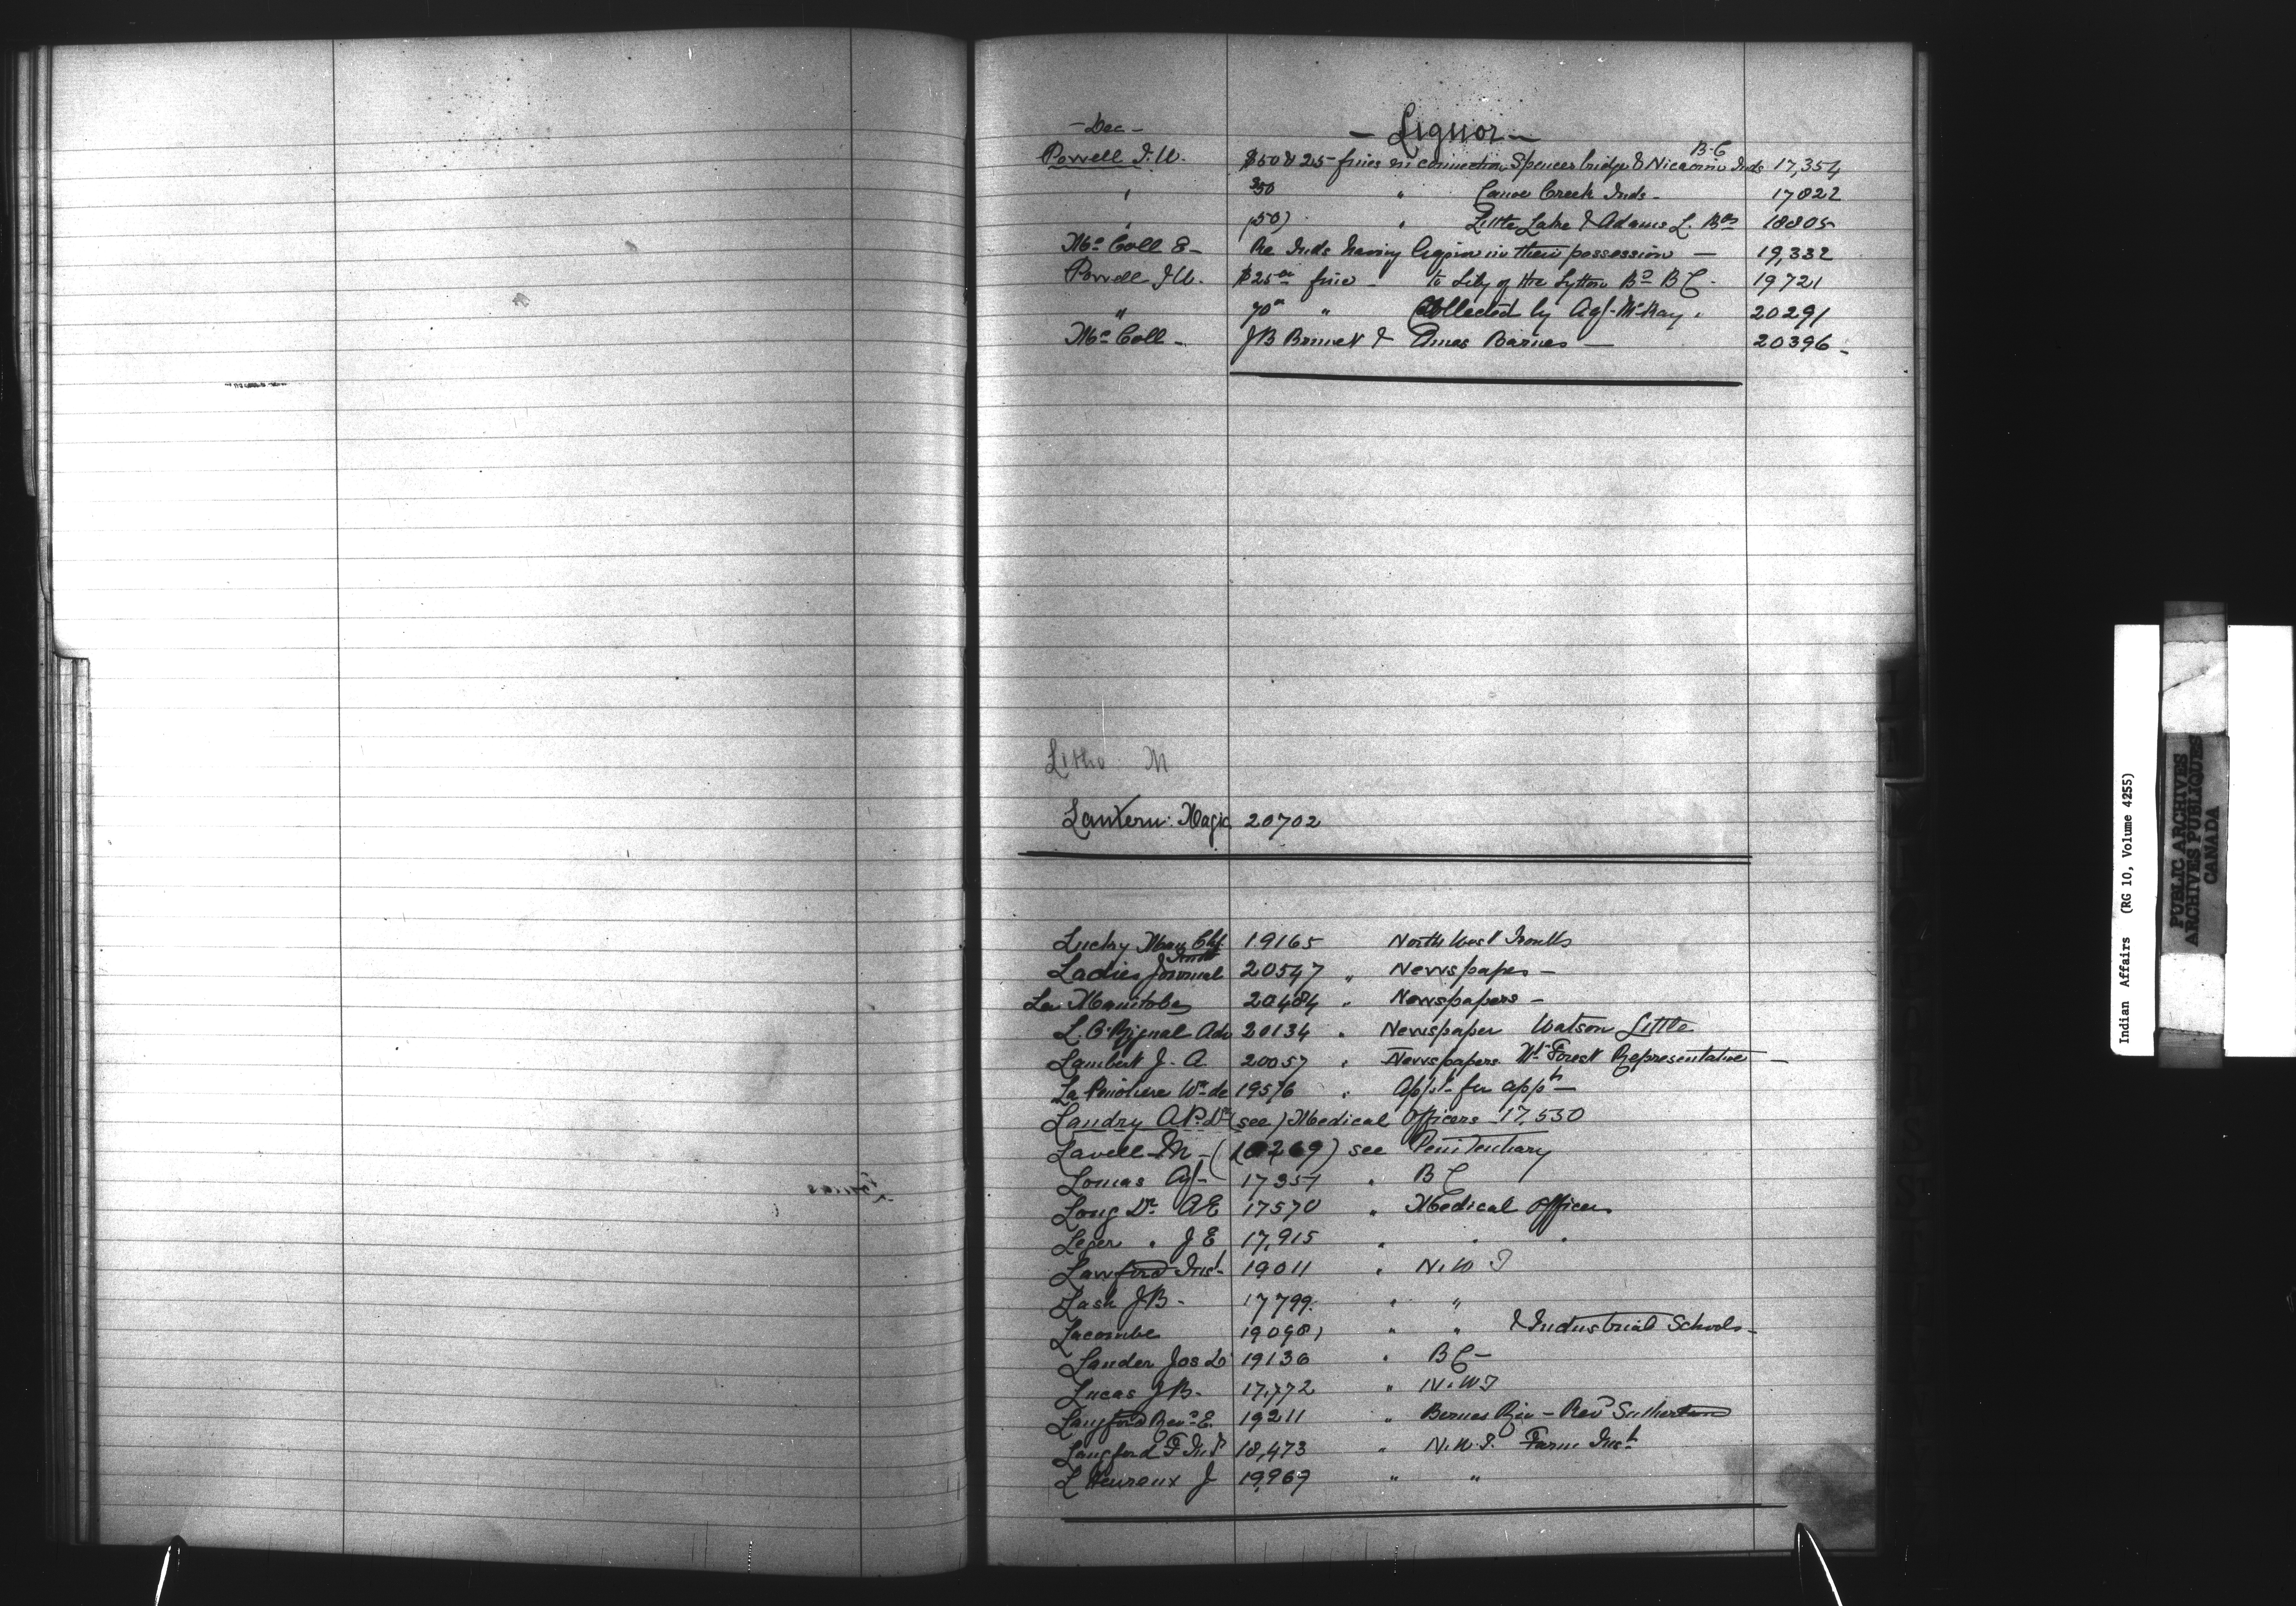 - Dec -
- Liquor -
B.C
Powell I.W. $50 & 25 fines in connection Spences bridge & Nicaomin Inds 17,354
" $50 " Canoe Creek Inds - 17822
" (50) " Little Lake & Adams L. Bds 18805
Mc Coll E - Re Inds having liquor in their possession - 19,332
Powell I W. $25 00 fine - to of the Lytton Bd B C - 19721
" 70 00 " Collected by Agt. McKay " 20291
Mc Coll - J B & Amos Barnes - 20396 -
Litho M
Lantern: Magic 20702
Luchy 19165 North West Troubles
Ladies Journal 20547 " Newspaper -
Le Manitoba 20484 " Newspapers -
L. O'Rignal Adv 20134 " Newspaper Watson Little
Lambert J. A. 20057 " Newspapers Mt Forest Representative -
La de 19576 " Appt. for appt -
Landry A.P. Dr (see) Medical Officers 17,530
Lavell M - (18269) see Penitentiary
Lomas Agt - 17357 " B C
Long Dr A E 17570 " Medical Officers
Leger " J E 17,915 " " "
Lawford Ind. 19011 " N. W T
Lash J B - 17799. " "
Lacombe 19098 " " & Industrial Schools -
Lander Jos D 19136 " B C -
Lucas J B. 17,772 " N. W T
Langford Revd E. 19211 " Berens Riv - Revd Sutherland
Langford F 18,473 " N. W. T. Farm Inst
L Heureux J 19,969 " "
Indian Affairs (RG 10, Volume 4255)
PUBLIC ARCHIVES
ARCHIVES PUBLIQUES
CANADA